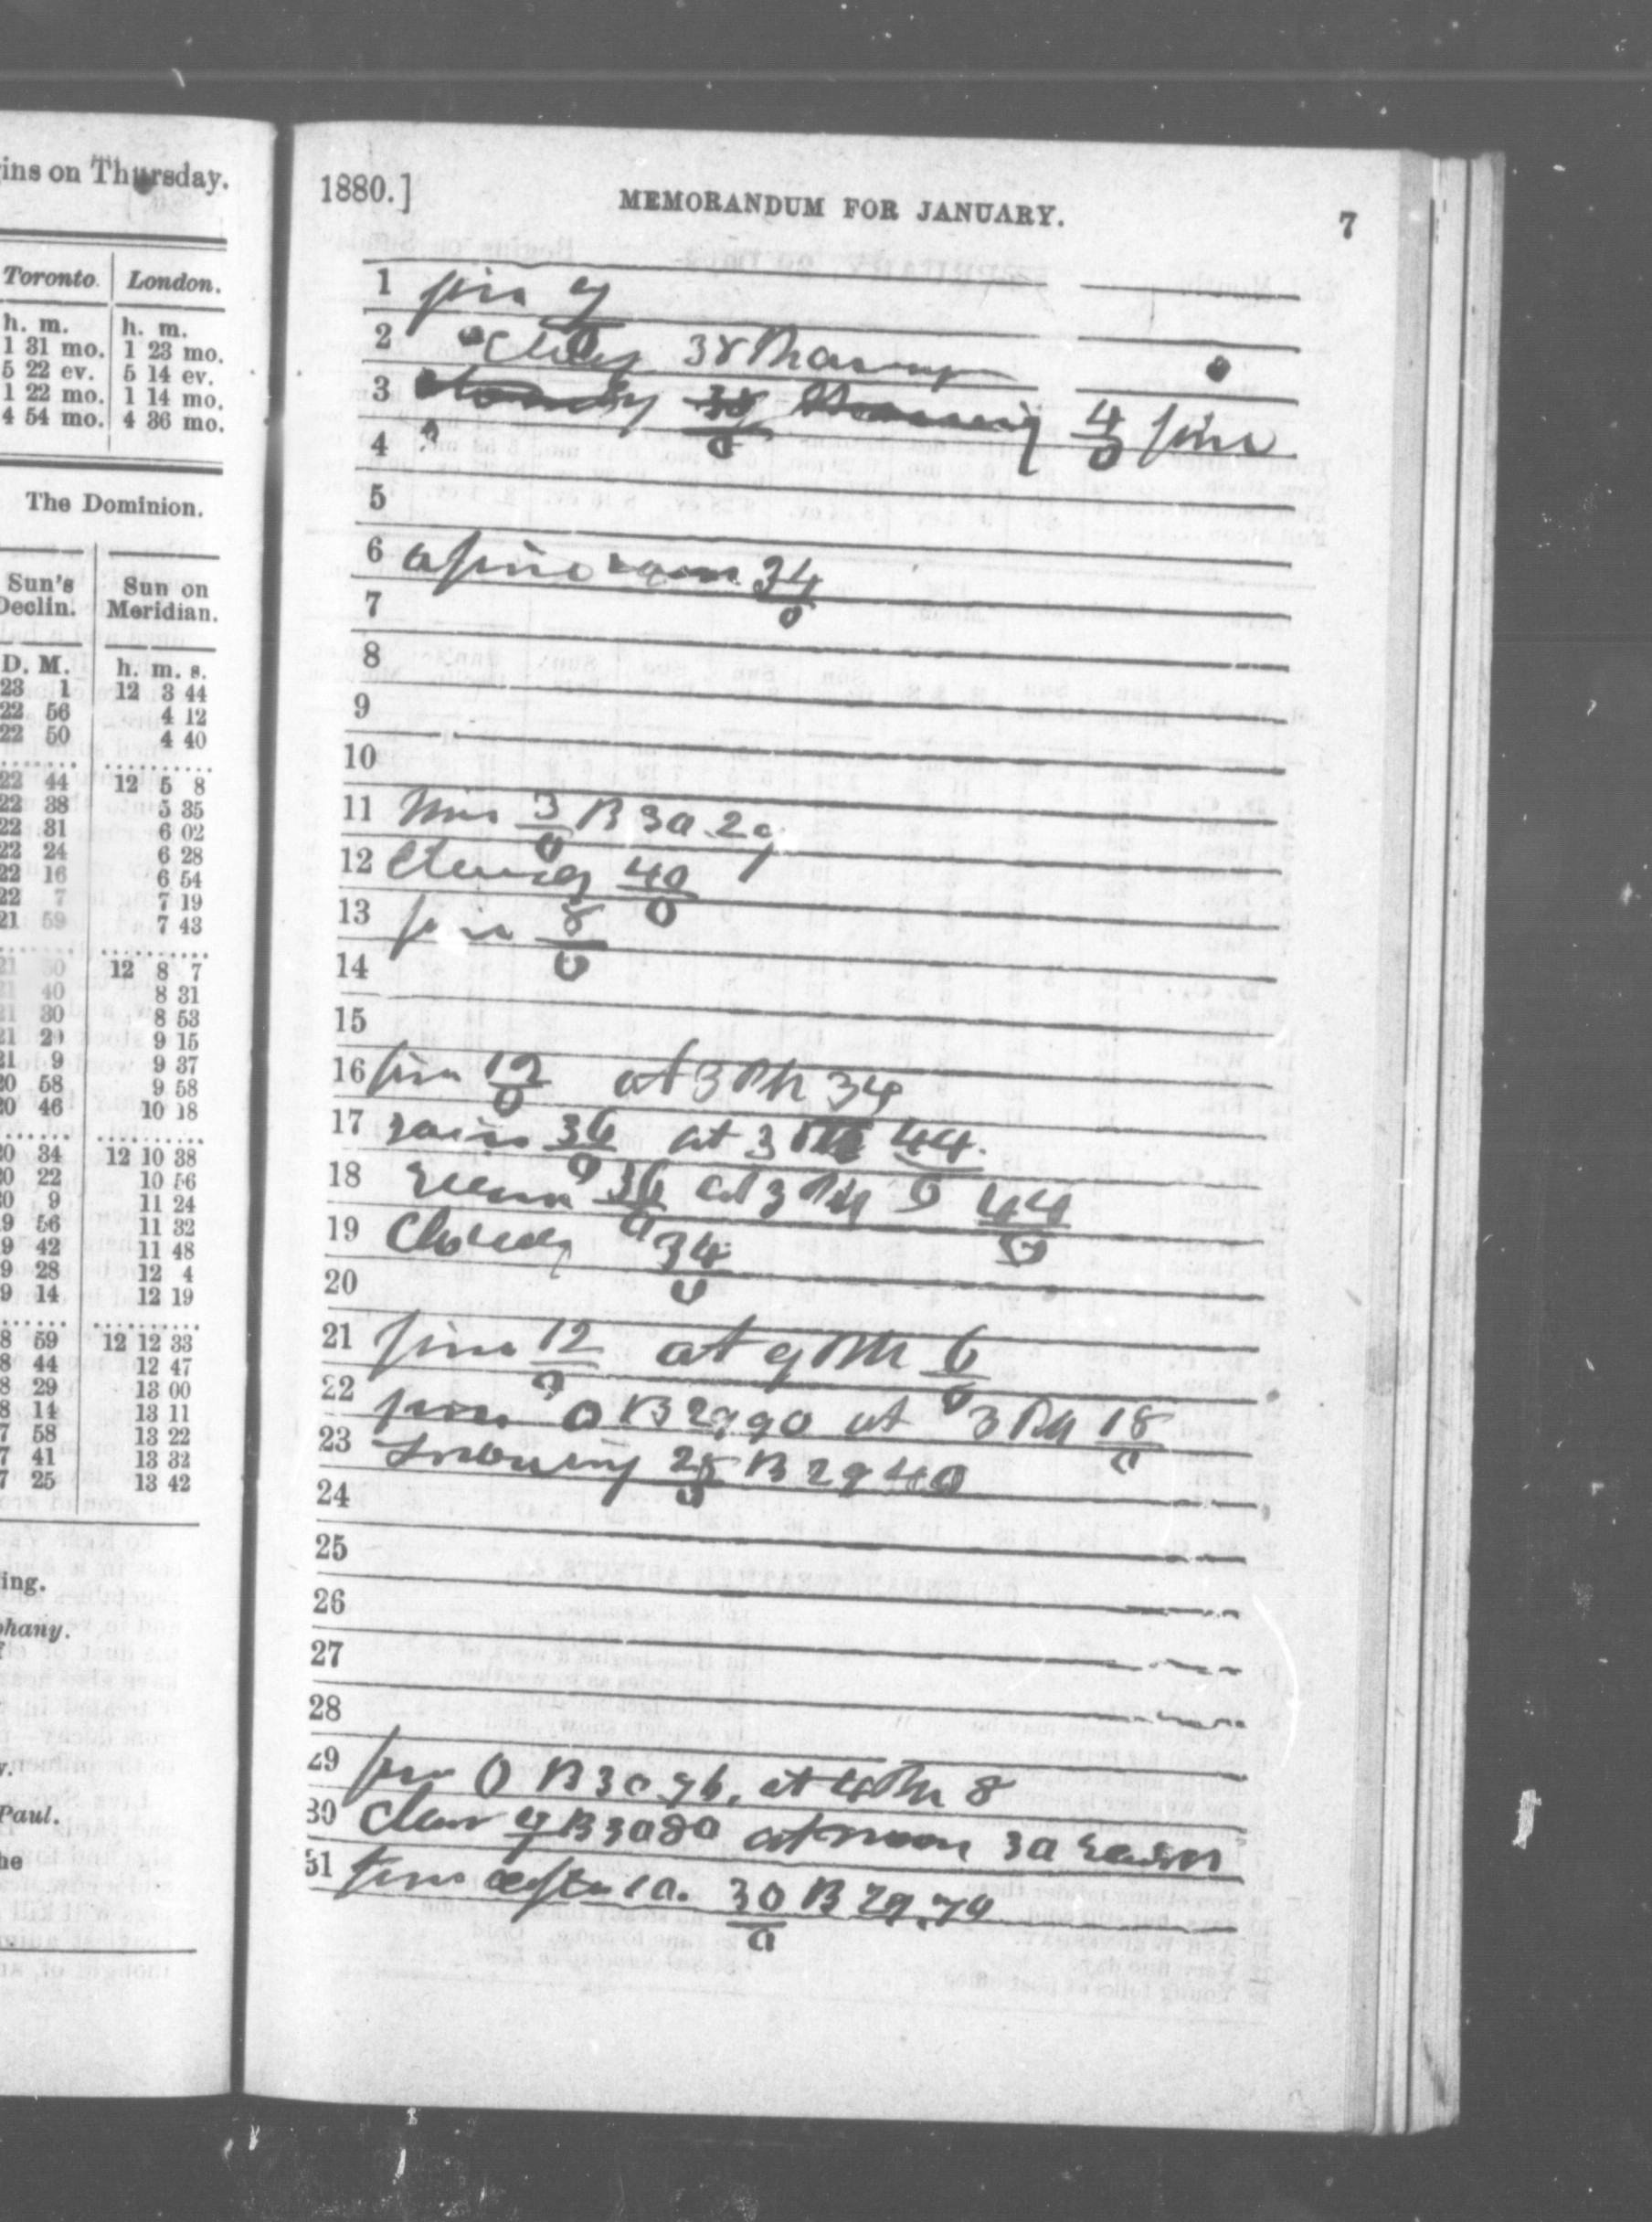 ins on Thursday.
Toronto. London.
h. m. h. m.
1 31 mo. 1 23 mo.
5 22 ev. 5 14 ev.
1 22 mo. 1 14 mo.
4 54 mo. 4 36 mo.
The Dominion.
Sun's Sun on
Declin. Meridian.
D. M. h. m. s.
23 1 12 3 44
22 56 4 12
22 50 4 40
22 44 12 5 8
22 38 5 35
22 31 6 02
22 24 6 28
22 16 6 54
22 7 7 19
21 59 7 43
12 8 7
40 8 31
21 30 8 53
21 20 9 15
21 9 9 37
20 58 9 58
20 46 10 18
20 34 12 10 38
20 22 10 56
20 9 11 24
9 56 11 32
9 42 11 48
9 28 12 4
9 14 12 19
8 59 12 12 33
8 44 12 47
8 29 13 00
8 14 13 11
7 58 13 22
7 41 13 32
7 25 13 42
ing.
phany.
Paul.
he
1880.] MEMORANDUM FOR JANUARY. 7
1 fine 9/0
2 Cloudy 38 Thawing
3 Cloudy 38/0 Thawing 4/0 fine
4
5
6 a fine rain 34/0
7
8
9
10
11 fine 3/0 B 30 29
12 Cloudy 40/0
13 fine 8/0
14
15
16 fine 12/0 at 3 PM 34
17 rain 36/0 at 3 PM 44/0
18 36/0 at 3 PM 44/0
19 Cloudy 34/0
20
21 fine 12/0 at 9 PM 6/0
22 fine 0 B 29 90 at 3 PM 18/0
23 Snowing 28/0 B 29 40
24
25
26
27
28
29 fine 0 B 30 76. at 4 PM 8
30 Clear 9 B 30 80 at noon 30
31 fine after 10. 30/0 B 29.70